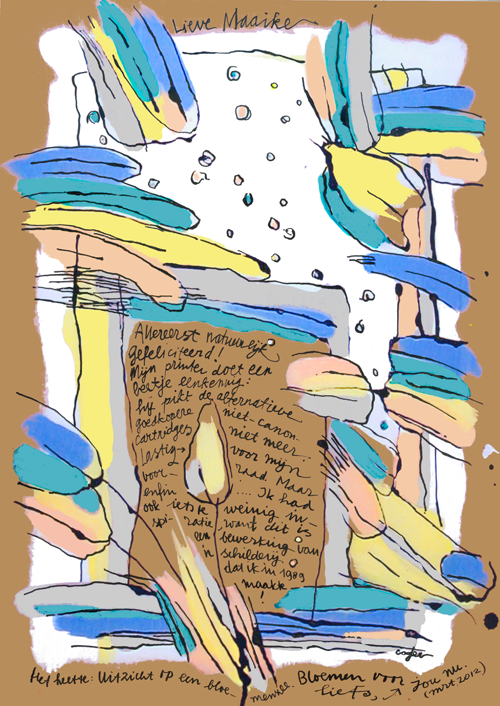 Lieve Maaike
Allereerst natuurlijk
gefeliciteerd!
Mijn printer doet een
beetje eenkennig:
hij pikt de alternatieve
goedkopere niet-canon
cartridges niet meer..
Lastig- voor mijn
voor- raad Maar
enfin .... Ik had
ook iets weinig in-
spi- ratie want dit is
een bewerking van
'n schilderij
dat ik in 1989
maakte
!
coger
Het heette: Uitzicht op een bloe-
menzee. Bloemen voor jou nu.
liefs, (mrt. 2012)